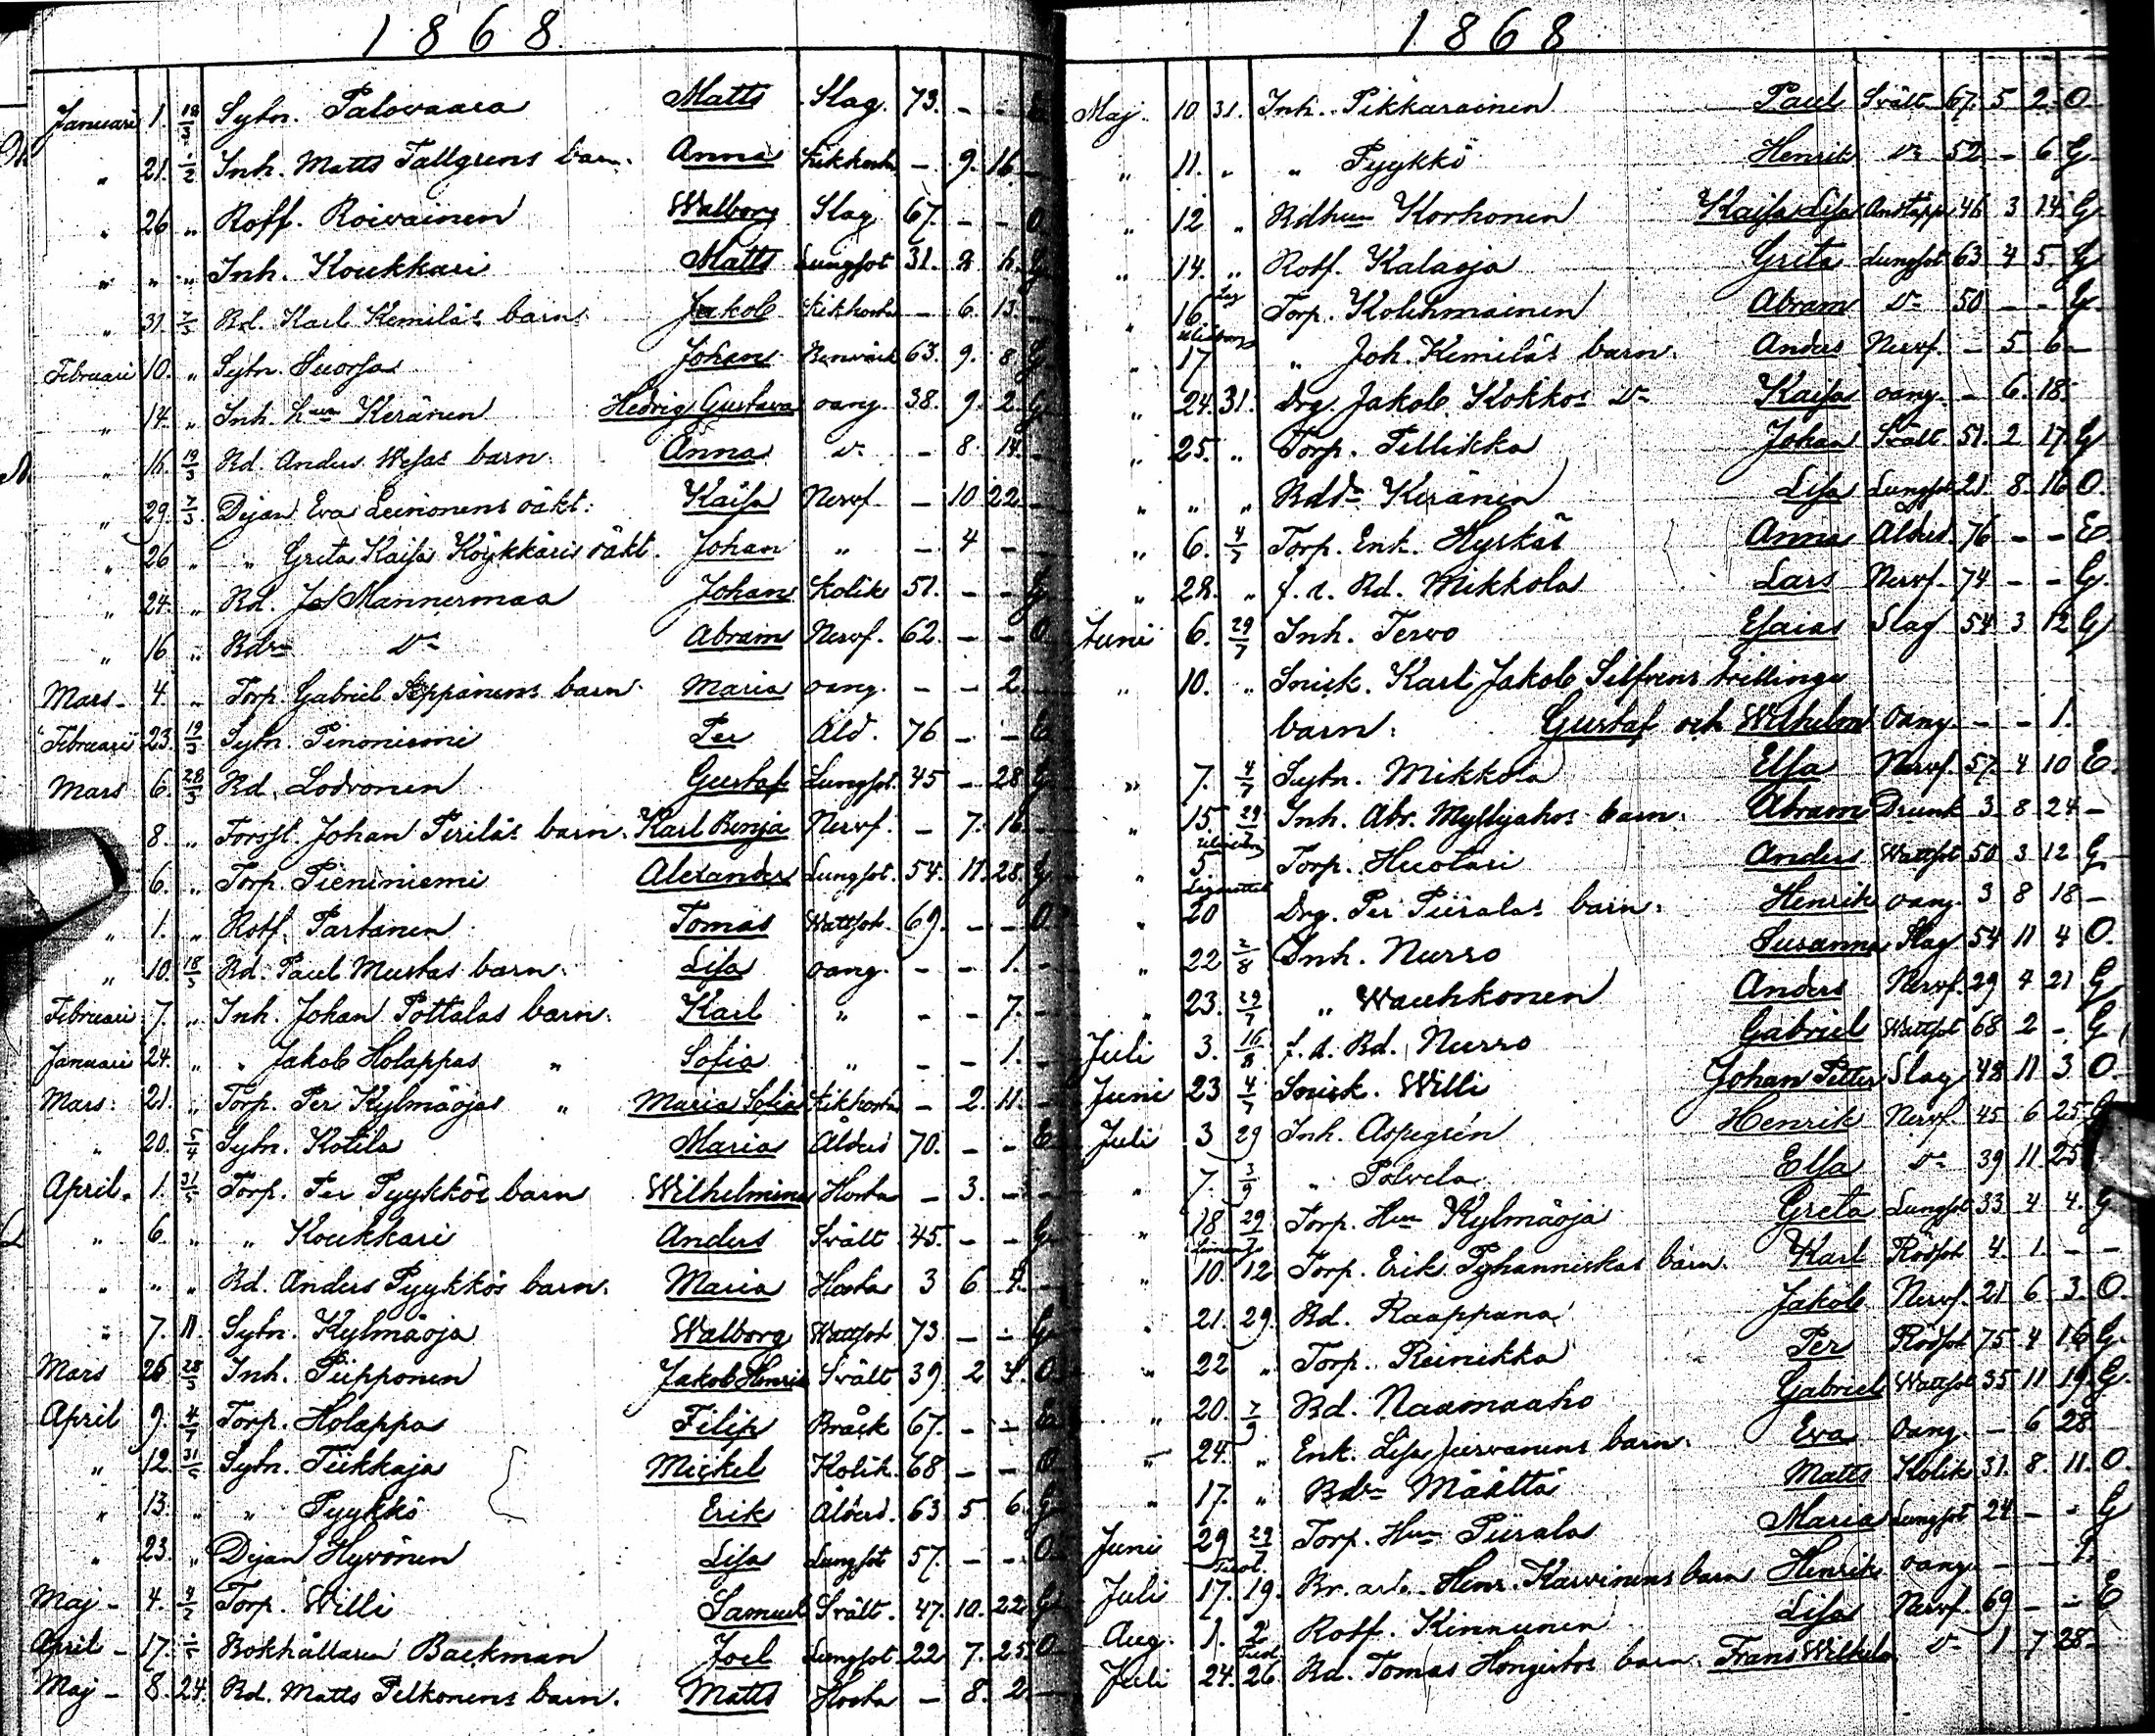 1868
Januari 1. 18/3 Sytn. Palovaara Matts Slag. 73. - - E
" 21. 1/2 Inh. Matts Tallgrens barn. Anna Kikhosta - 9. 16. -
" 26 " Rotf. Roivainen Walborg Slag 67. - - O
" " " Inh. Koukkari Matts Lungsot 31. G
" 31. Rd. Karl Kemiläs barn Jakob Kikhosta - 6. 13. -
Februari 10. " Sytn. Suorsa Johan 63. 9. 8 G
" 14. " Inh. hun Keränen Hedvig Gustava oang. 38. 9. 2. G
" 16. 19/3 Rd. Anders Wesas barn. Anna - 8. 14. -
" 29. 7/3 Dejan Eva Leinonens oäkt. Kaisa Nervf. - 10. 22. -
" 26 " " Greta Kaisa Köykkäris oäkt. Johan " - 4 - -
" 24. " Rd. Mannermaa Johan Kolik 51. - - G
" 16 " Abram Nervf. 62. - - O
Mars - 4. " Torp. Gabriel Seppänens barn. Maria oang. - - 2. -
Februari 23. 19/3 Sytn. Pinoniemi Per Åld. 76 - - E
Mars 6. 28/3 Rd. Lodvonen Gustaf Lungsot. 45 - 28 G
8. " Johan Piriläs barn. Karl Benja Nervf. - 7. 16. -
6. " Torp. Pieniniemi Alexander Lungsot. 54. 11. 28. G
" 1. " Rotf. Partanen Tomas Wattsot. 69. - - O
" 10. 18/3 Rd. Paul Mustas barn. Lisa oang. - - 1. -
Februari 7. " Inh. Johan Pottalas barn. Karl " - - 7. -
Januari 24. " " Jakob Holappas " Sofia " - - 1. -
Mars. 21. " Torp. Per Kylmäojas " Maria Sofia Kikhosta - 2. 11. -
" 20. 5/4 Sytn. Kotila Maria Ålders 70. - - E
April. 1. 31/5 Torp. Per Pyykkös barn Wilhelmina Hosta - 3. - -
" 6. " " Koukkari Anders Svält 45. - - G
" " " Rd. Anders Pyykkös barn. Maria Hosta 3 6 -
" 7. 11. Sytn. Kylmäoja Walborg Wattsot 73 - - G
Mars 26 28/3 Inh. Piipponen Jakob Henrik Svält 39. 2 O
April 9. 4/7 Torp. Holappa Filip Bråck 67. - - E
" 12. 31/5 Sytn. Tiikkaja Mickel Kolik. 68 - - O
" 13. " " Pyykkö Erik Ålderd. 63 5 6. G
" 23. " Dejan Hyvönen Lisa Lungsot 57. - - O
Maj - 4. 4/7 Torp. Willi Samuel Svält. 47. 10. 22. G
April - 17. Bokhållaren Backman Joel Lungsot. 22 7. 25. O
Maj - 8. 24. Rd. Matts Pelkonens barn. Matts Hosta - 8. 2. -
1868
Maj. 10 31. Inh. Pikkarainen Paul Svält 67. 5 2. O
" 11. " " Pyykkö Henrik 52. - 6. G
" 12 " Korhonen Kaisa Lisa 46 3 14. G
" 14. " Rotf. Kalaoja Greta Lungsot 63 4 5. G
" 16. Torp. Kolehmainen Abram 50 - - G
" 17 " Joh. Kemiläs barn. Anders Nervf. - 5 6 -
" 24. 31. Drg. Jakob Kokkos Kaisa oang. - 6. 18.
" 25. " Torp. Pellikka Johan Svält 51. 2 17. G
" " " Keränen Lisa Lungsot 21. 8. 16 O.
" 6. 4/7 Torp. Enk. Hyrkäs Anna Ålderd. 76 - - E
" 28. " f. d. Rd. Mikkola Lars Nervf. 74 - - G
Juni 6. 29/7 Inh. Tervo Esaias Slag 54 3 12 G
" 10. " Snick. Karl Jakob Silfvens trillinge
barn. Gustaf och Wilhelm oang. - - 1.
" 7. 4/7 Sytn. Mikkola Elsa Nervf. 57. 4 10 E.
" 15. 29/7 Inh. Abr. Myllyahos barn. Abram Drunk 3 8 24 -
" 5 Torp. Huotari Anders Wattsot 50 3 12 G
" 20 Drg. Per Piiralas barn. Henrik oang. 3 8 18 -
" 22 2/8 Inh. Nurro Susanna Slag 54 11 4 O.
" 23. 29/7 " Wauhkonen Anders Nervf. 29 4 21 G
Juli 3. 16/8 f. d. Rd. Nurro Gabriel Wattsot 68 2 - G
Juni 23 4/7 Snick. Willi Johan Petter Slag 48 11 3 O.
Juli 3 29 Inh. Aspegrén Henrik Nervf. 45 6 25. G
" 7. 3/9 " Polvela Elsa 39 11. 25
" 18 29 Torp. Hun Kylmäoja Greta Lungsot 33 4 4. G
" 10. 12 Torp. Erik Pyhänniskas barn. Karl Rödsot 4. 1. - -
" 21. 29. Rd. Raappana Jakob Nervf. 21 6 3. O.
" 22 " Torp. Reinikka Per Rödsot 75 4 16 G.
" 20. 7/9 Rd. Naamaaho Gabriel Wattsot 35 11 19. G.
" 24. " Enk. Lisa Jurvanens barn. Eva oang. - 6 28
" 17. " Määttä Matts Kolik 31. 8. 11. O.
Juni 29 29/7 Torp. Hun Piirala Maria Lungsot 24 - - G
Juli 17. 19. Henr. Karvinens barn Henrik oang. - - 1.
Aug. 1. 2 Rotf. Kinnunen Lisa Nervf. 69 - - E
Juli 24. 26. Rd. Tomas Hongistos barn. Frans Wilhelm 1 7 28 -